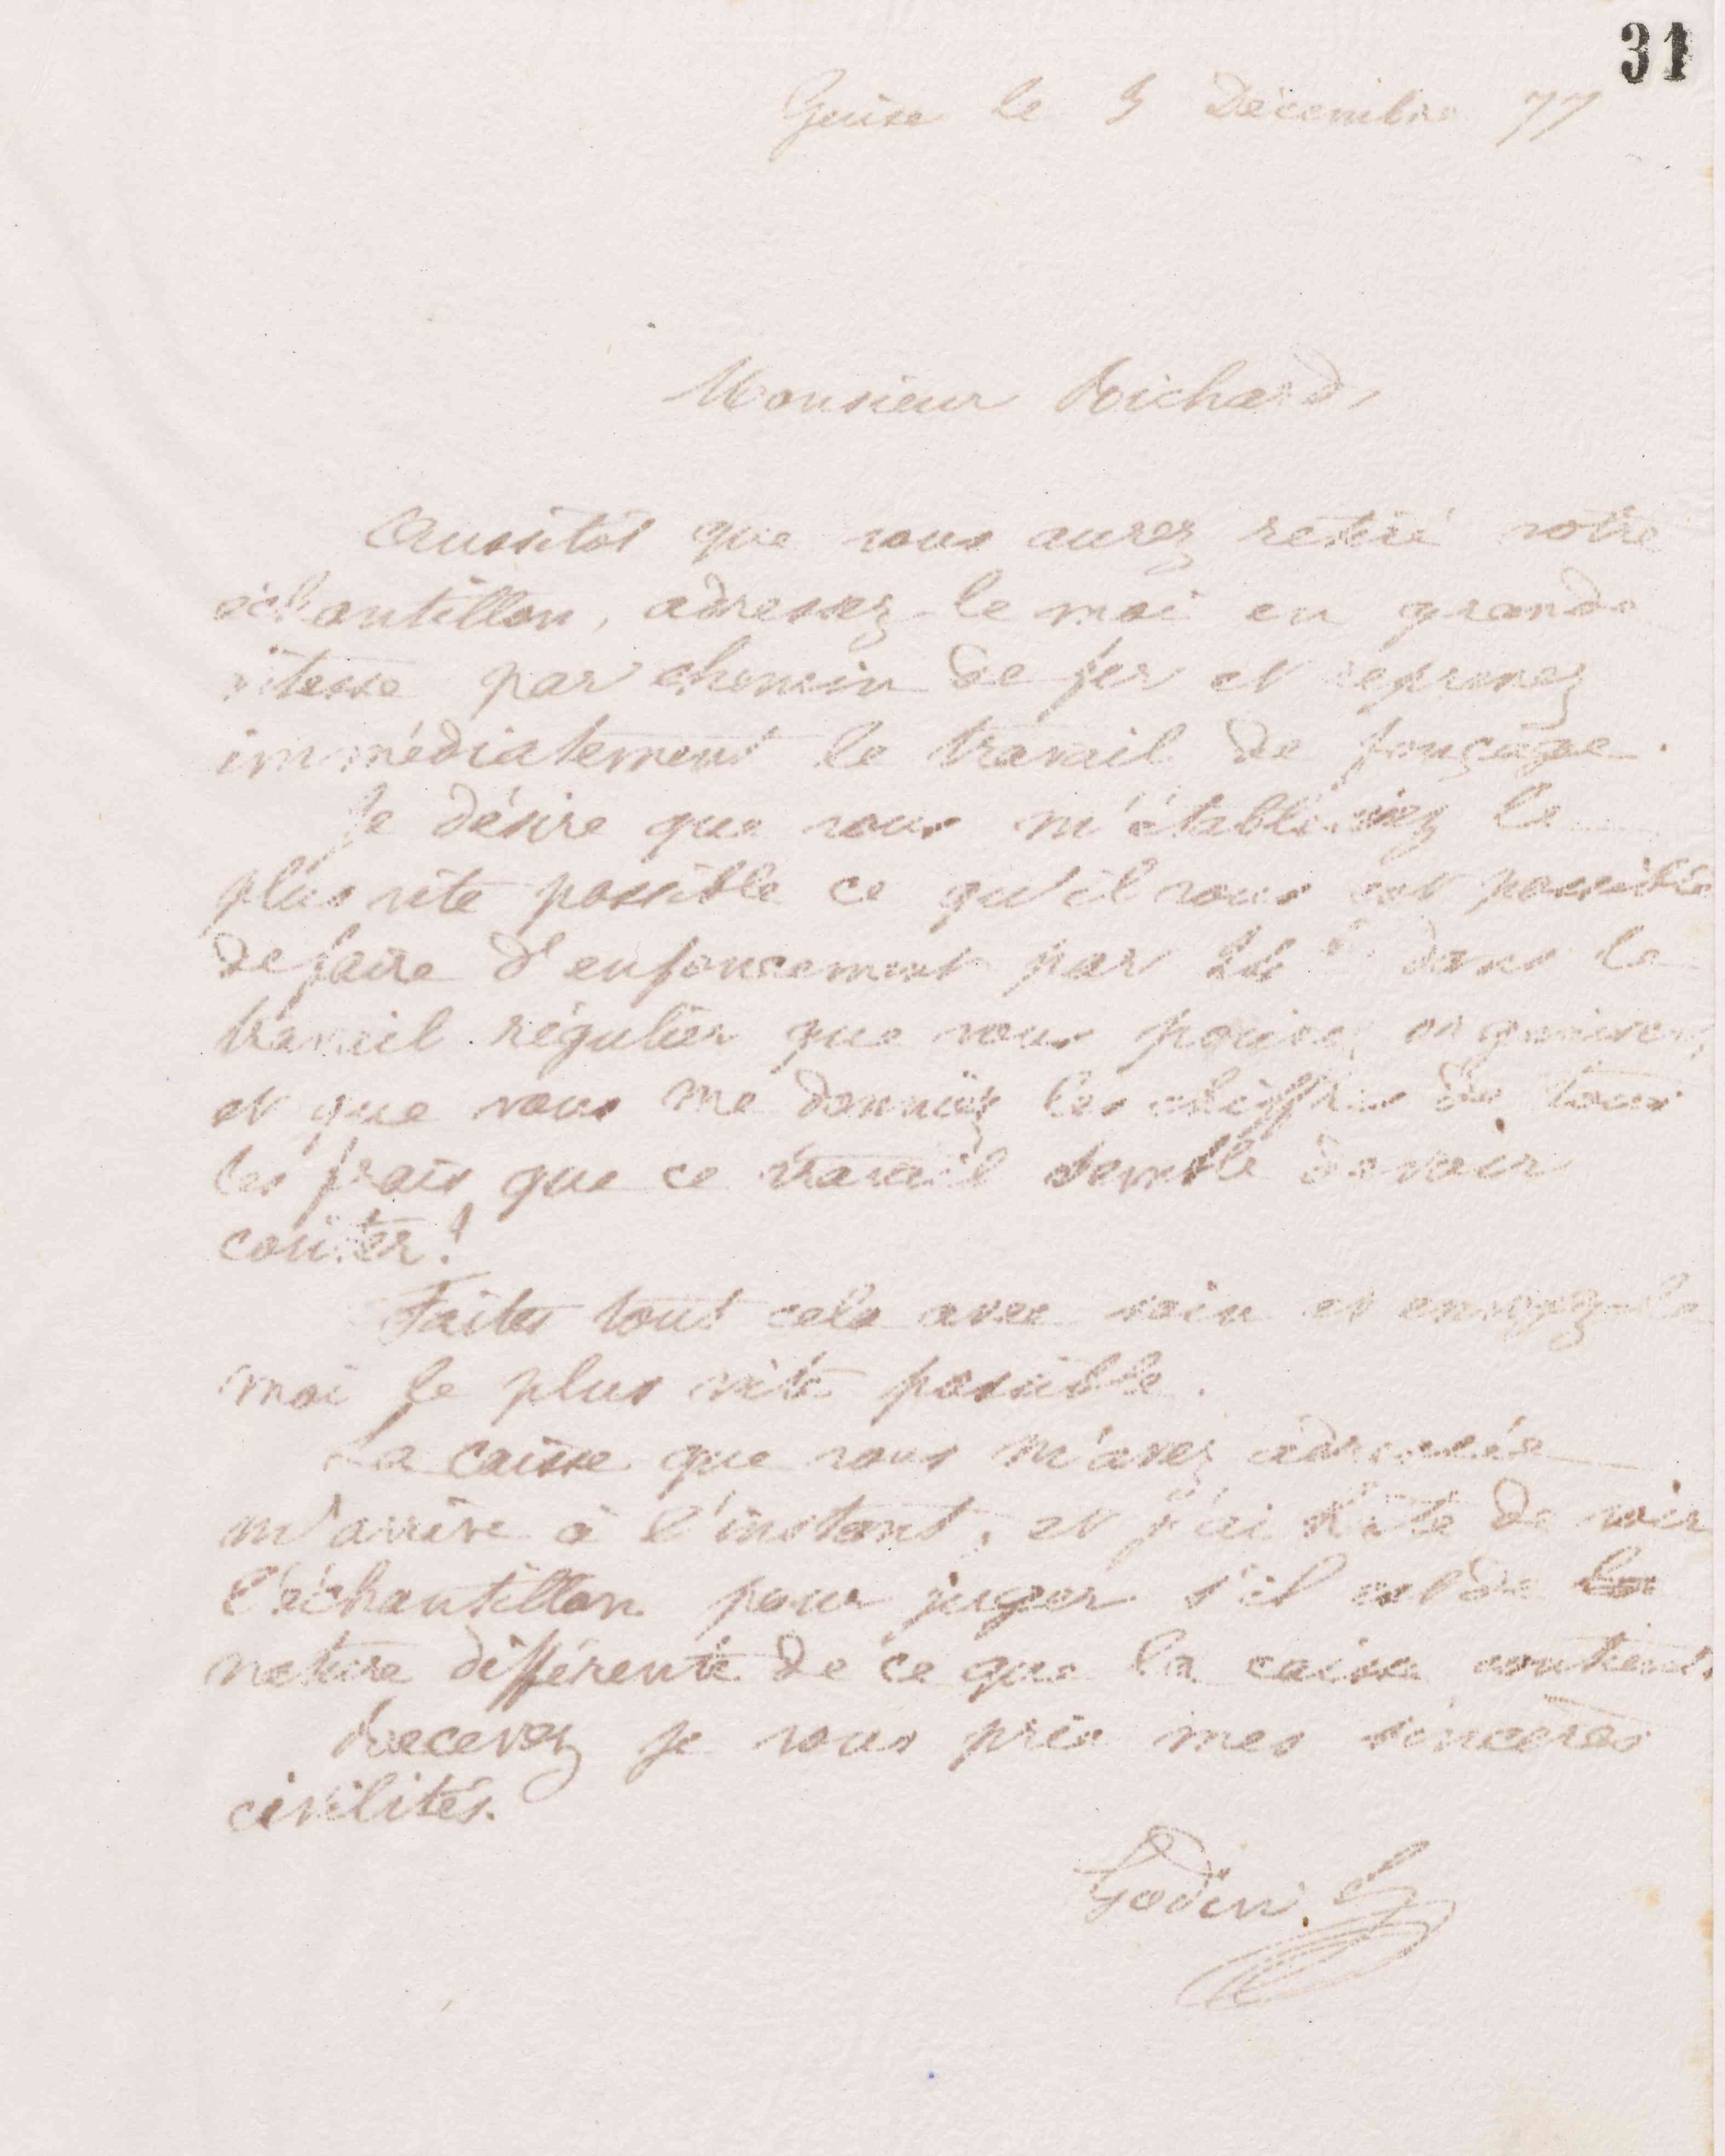 31
Guise le 3 Décembre 77
Monsieur Richard,
Aussitôt que vous aurez retiré votre
échantillon, adressez-le moi en grande
vitesse par chemin de fer et reprenez
immédiatement le travail de fonçage.
Je désire que vous m'établissiez le
plus vite possible ce qu'il vous est possible
de faire d'enfoncement par 24 h dans le
travail régulier que vous pouvez organiser
et que vous me donniez les chiffres de tous
les frais que ce travail semble devoir
coûter !
Faites tout cela avec soin et envoyez-le
moi le plus vite possible.
La caisse que vous m'avez adressée
m'arrive à l'instant, et j'ai hâte de voir
l'échantillon pour juger s'il est de la
nature différente de ce que la caisse contient.
Recevez je vous prie mes sincères
civilités.
Godin